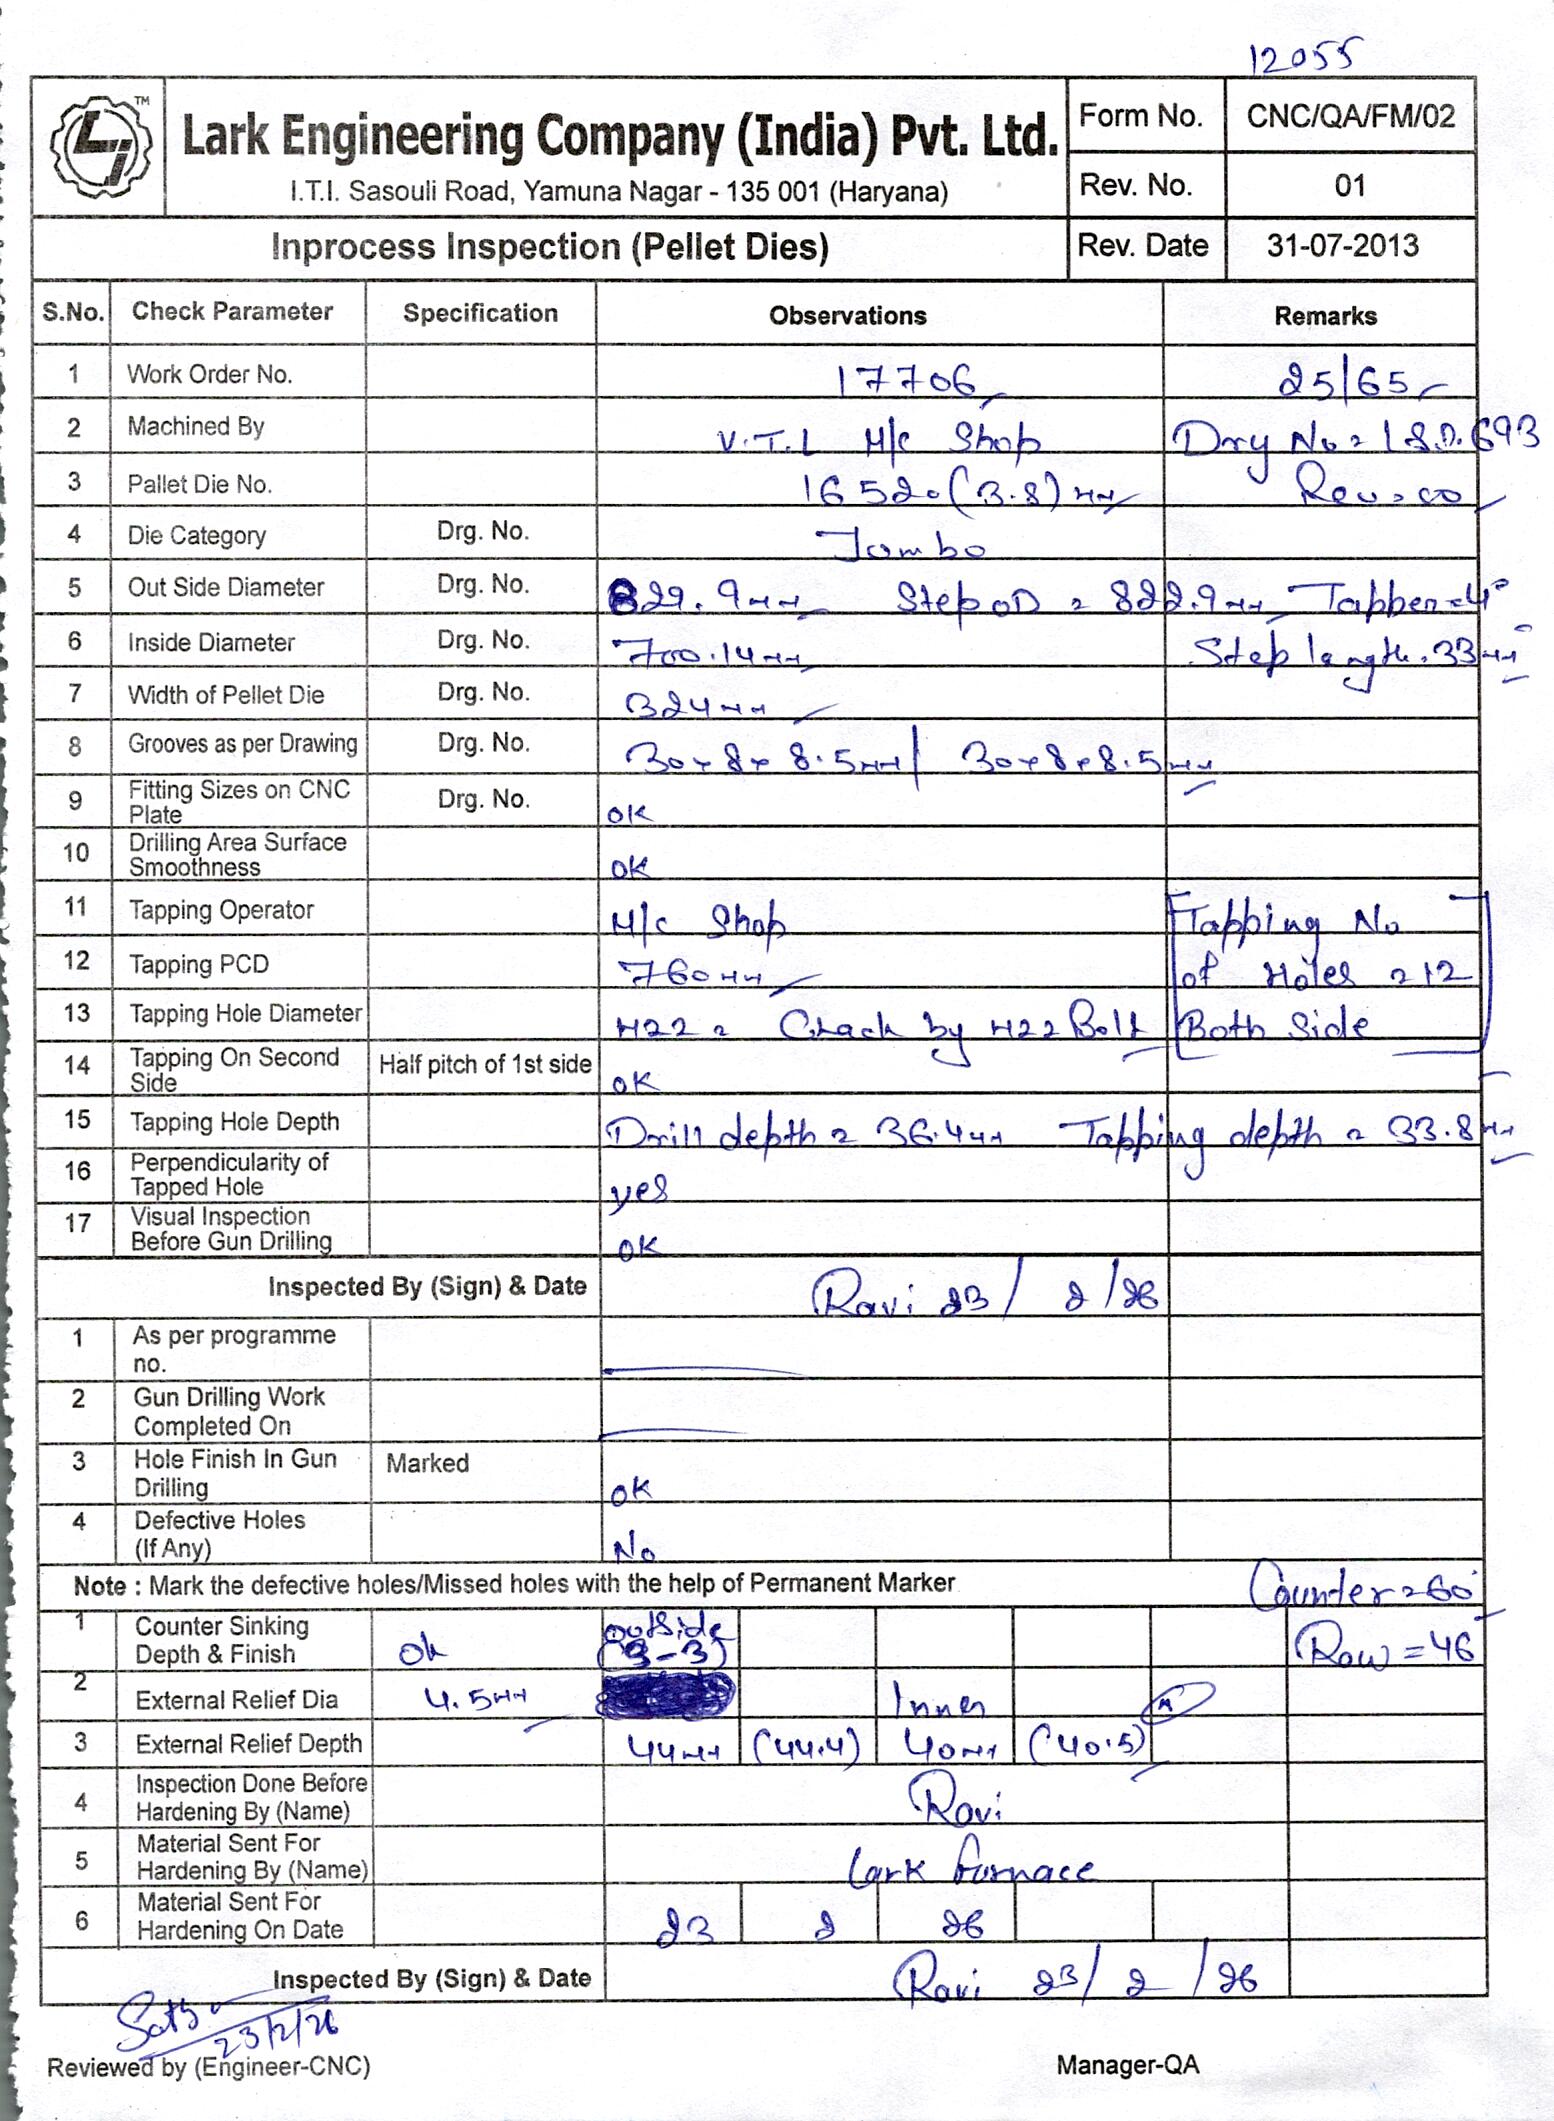 12055
TM
Lark Engineering Company (India) Pvt. Ltd.
I.T.I. Sasouli Road, Yamuna Nagar - 135 001 (Haryana)
Form No. CNC/QA/FM/02
Rev. No. 01
Inprocess Inspection (Pellet Dies) Rev. Date 31-07-2013
S.No. Check Parameter Specification Observations Remarks
1 Work Order No. 17706 25/65
2 Machined By V.T.L M/c Shop Dry No = LSD.693
3 Pallet Die No. 1652 (3.8) mm Rev = 00
4 Die Category Drg. No. Jombo
5 Out Side Diameter Drg. No. 829.9mm Step OD = 822.9mm Tapper = 4°
6 Inside Diameter Drg. No. 700.14mm Step length = 33mm
7 Width of Pellet Die Drg. No. 324mm
8 Grooves as per Drawing Drg. No. 30×8×8.5mm / 30×8×8.5mm
9 Fitting Sizes on CNC Plate Drg. No. ok
10 Drilling Area Surface Smoothness ok
11 Tapping Operator M/c Shop Tapping No
12 Tapping PCD 760mm of Holes = 12
13 Tapping Hole Diameter M22 = Crack by M22 Bolt Both Side
14 Tapping On Second Side Half pitch of 1st side ok
15 Tapping Hole Depth Drill depth = 36.4mm Tapping depth = 33.8mm
16 Perpendicularity of Tapped Hole yes
17 Visual Inspection Before Gun Drilling ok
Inspected By (Sign) & Date Ravi 23/2/26
1 As per programme no.
2 Gun Drilling Work Completed On
3 Hole Finish In Gun Drilling Marked ok
4 Defective Holes (If Any) No
Note : Mark the defective holes/Missed holes with the help of Permanent Marker Counter = 60°
1 Counter Sinking Depth & Finish ok outside (3-3) Row = 46
2 External Relief Dia 4.5mm Inner
3 External Relief Depth 44mm (44.4) 40mm (40.5)
4 Inspection Done Before Hardening By (Name) Ravi
5 Material Sent For Hardening By (Name) Lark furnace
6 Material Sent For Hardening On Date 23 2 26
Inspected By (Sign) & Date Ravi 23/2/26
23/2/26
Reviewed by (Engineer-CNC) Manager-QA